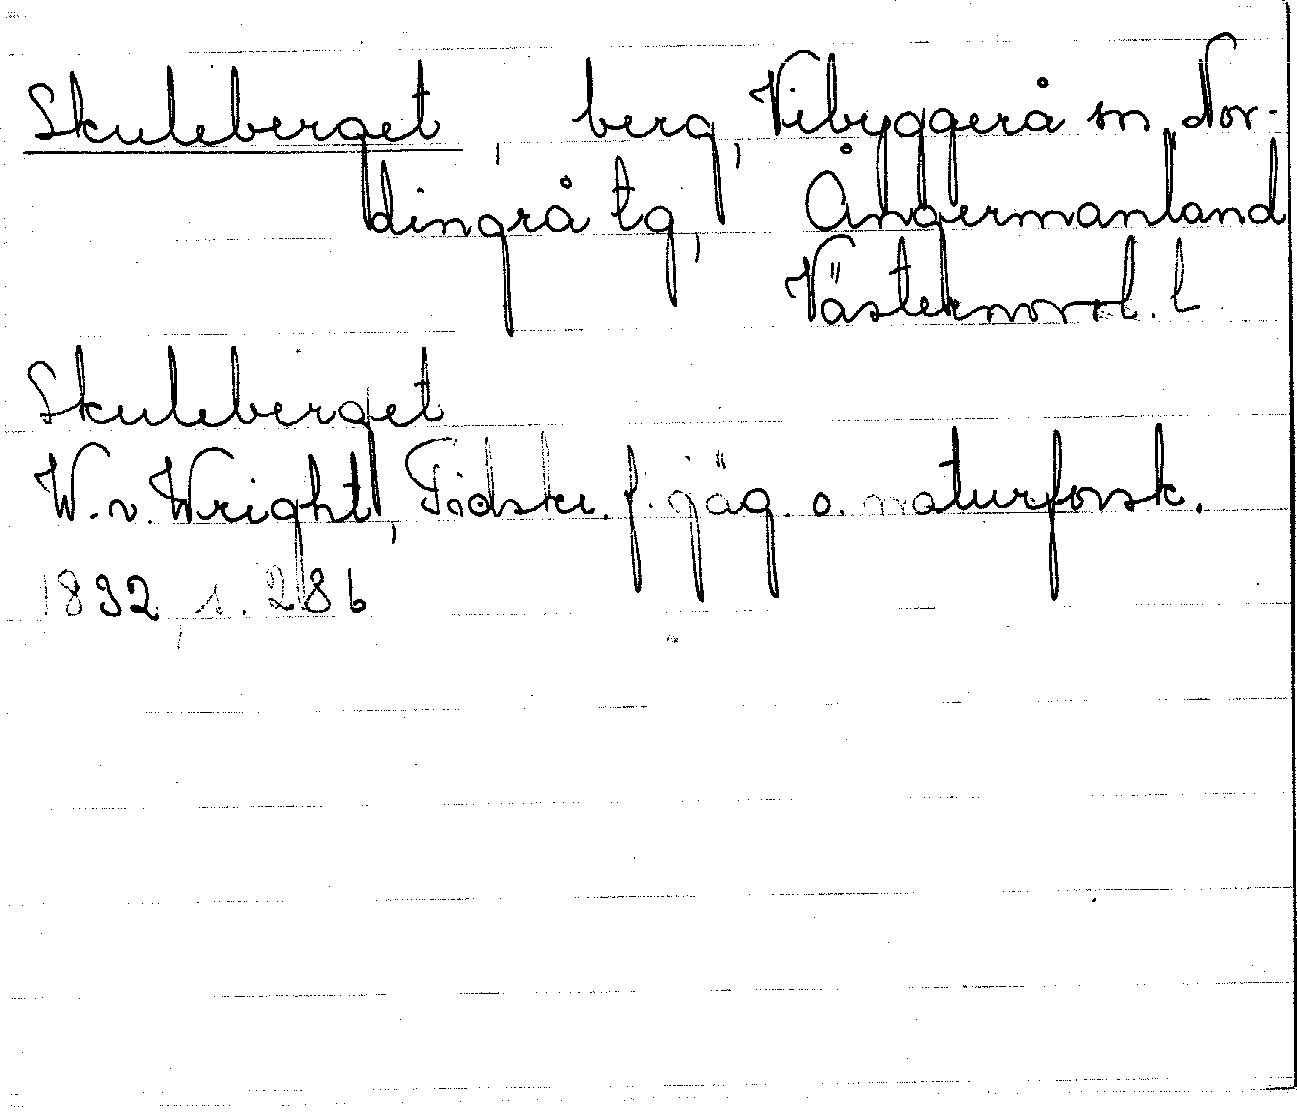 Skuleberget, berg, Vibyggerå sn, Nor-
dingrå tg, Ångermanland
Västernorrl. l
Skuleberget
W. v. Wright, Tidskr. f. jäg. o. naturforsk.
1832, s. 286